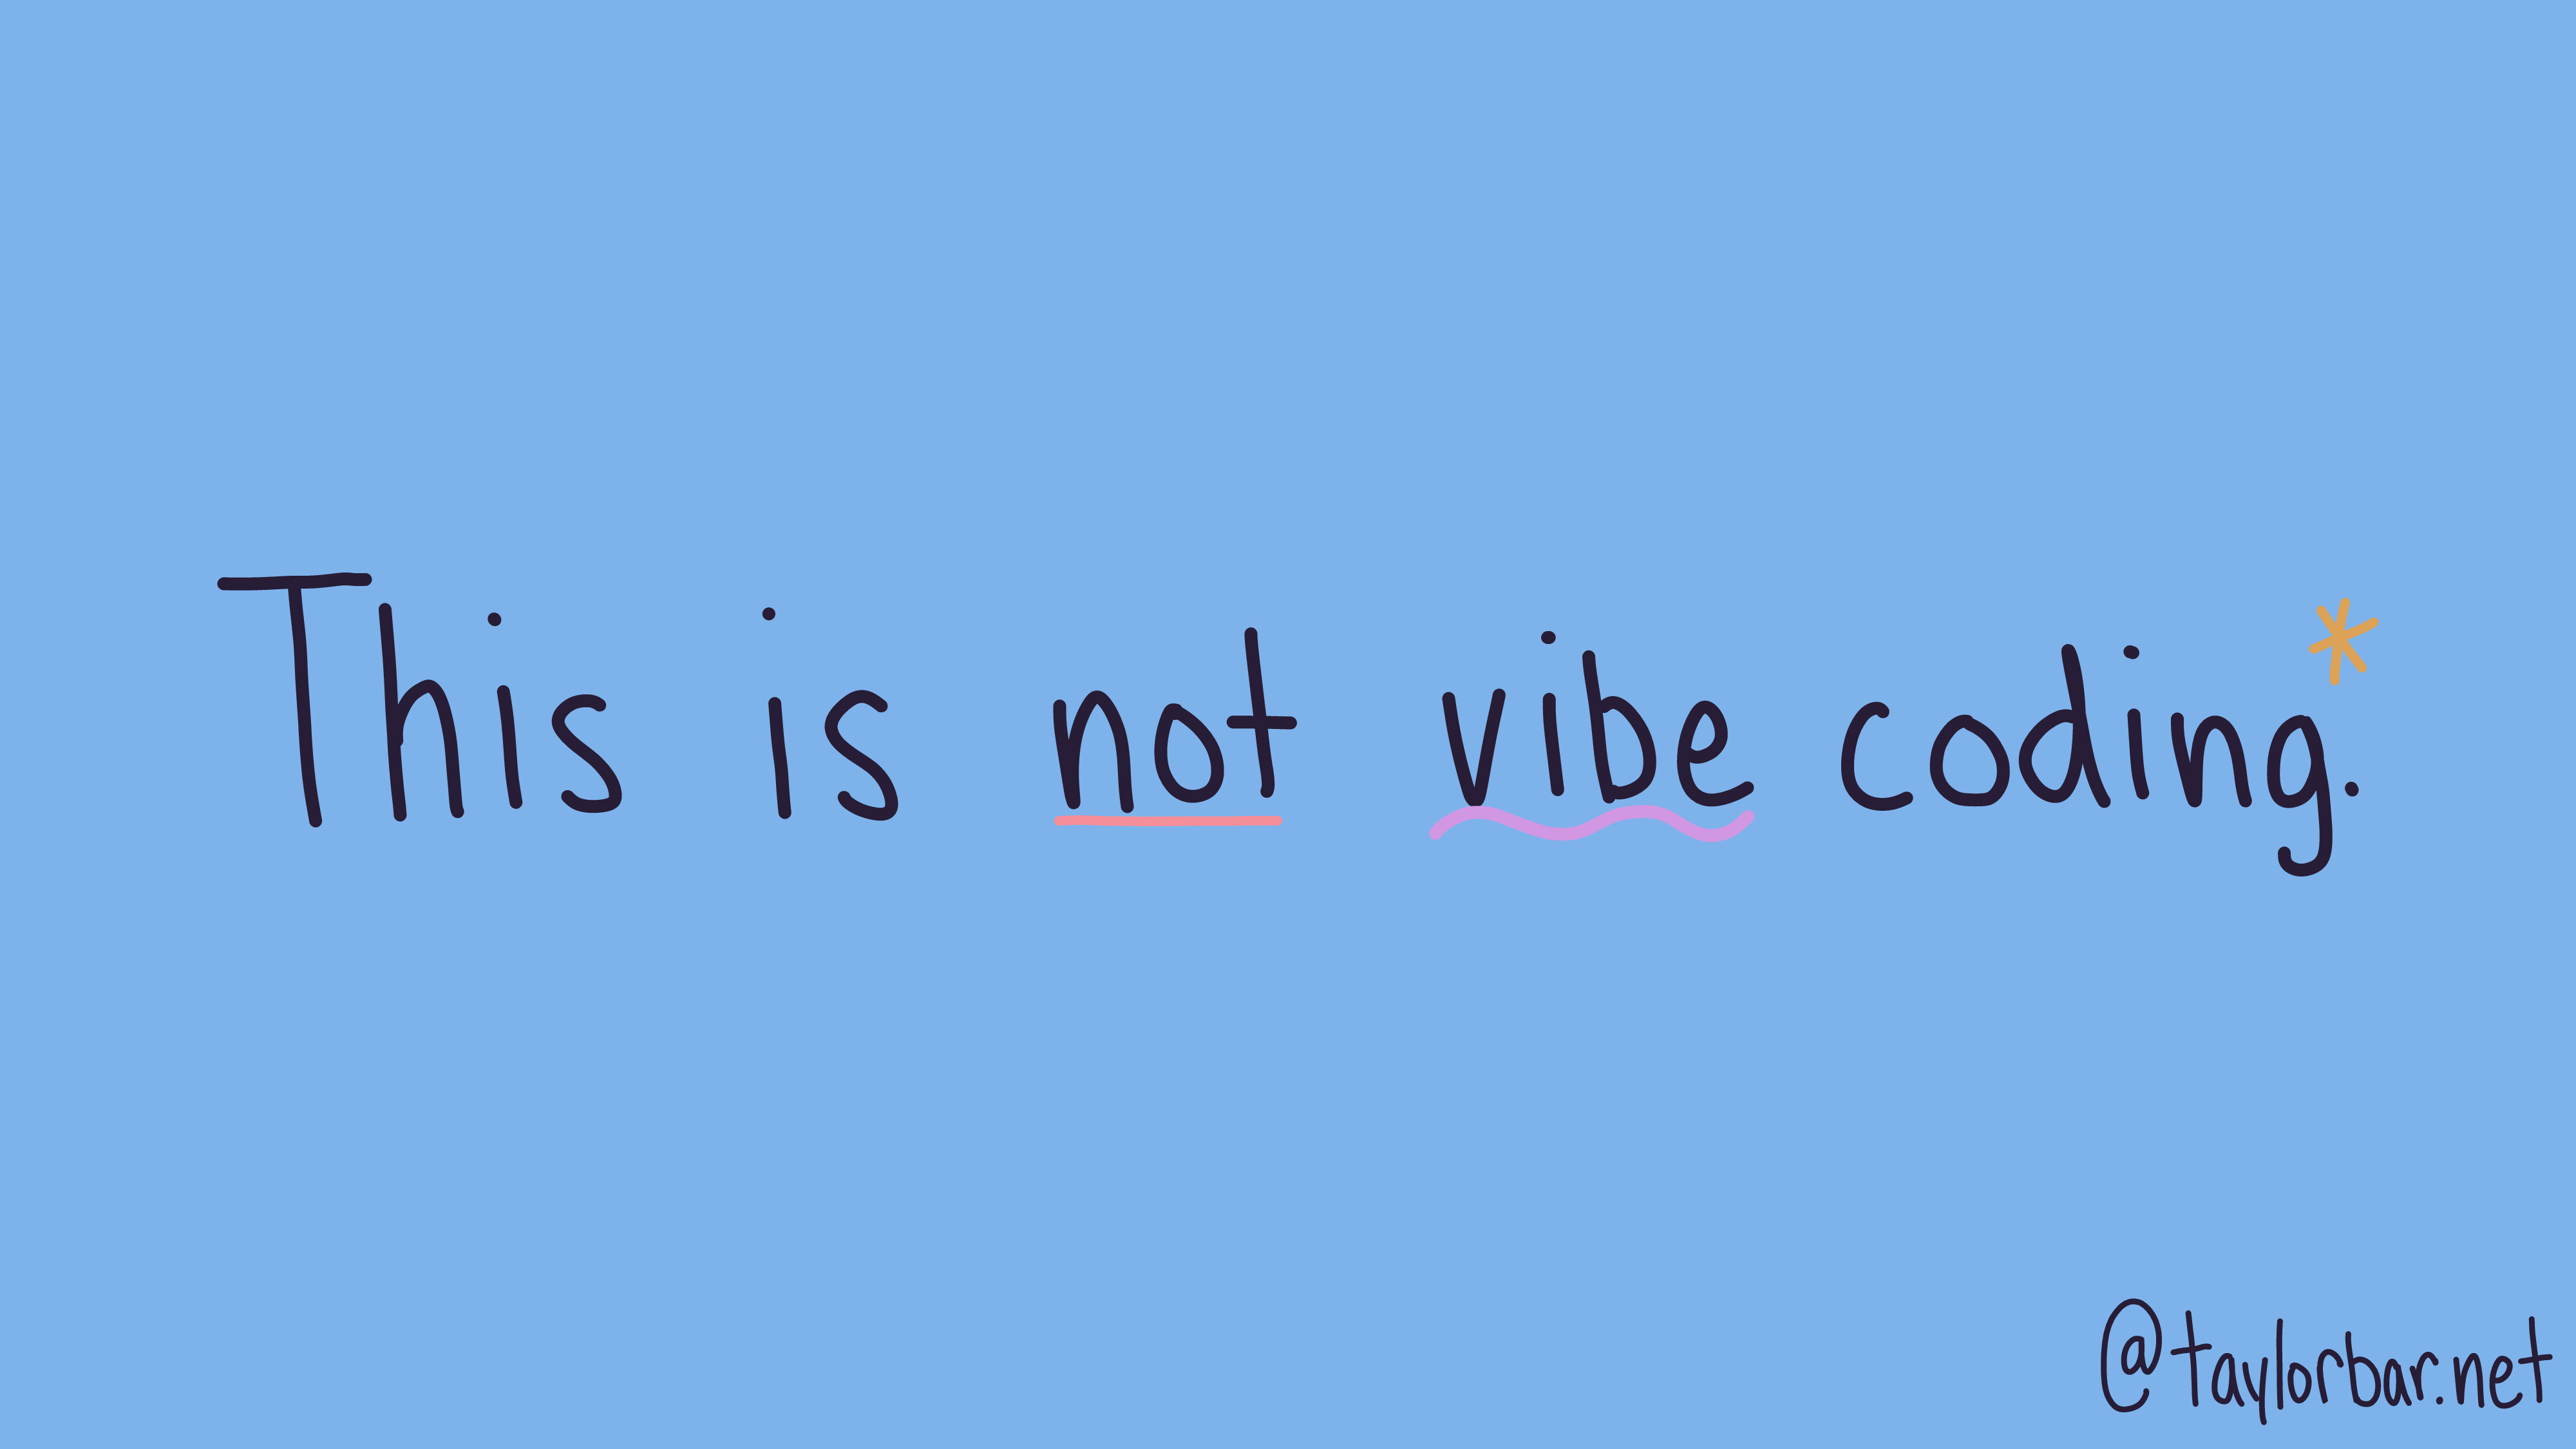 This is not vibe coding.*
@taylorbar.net